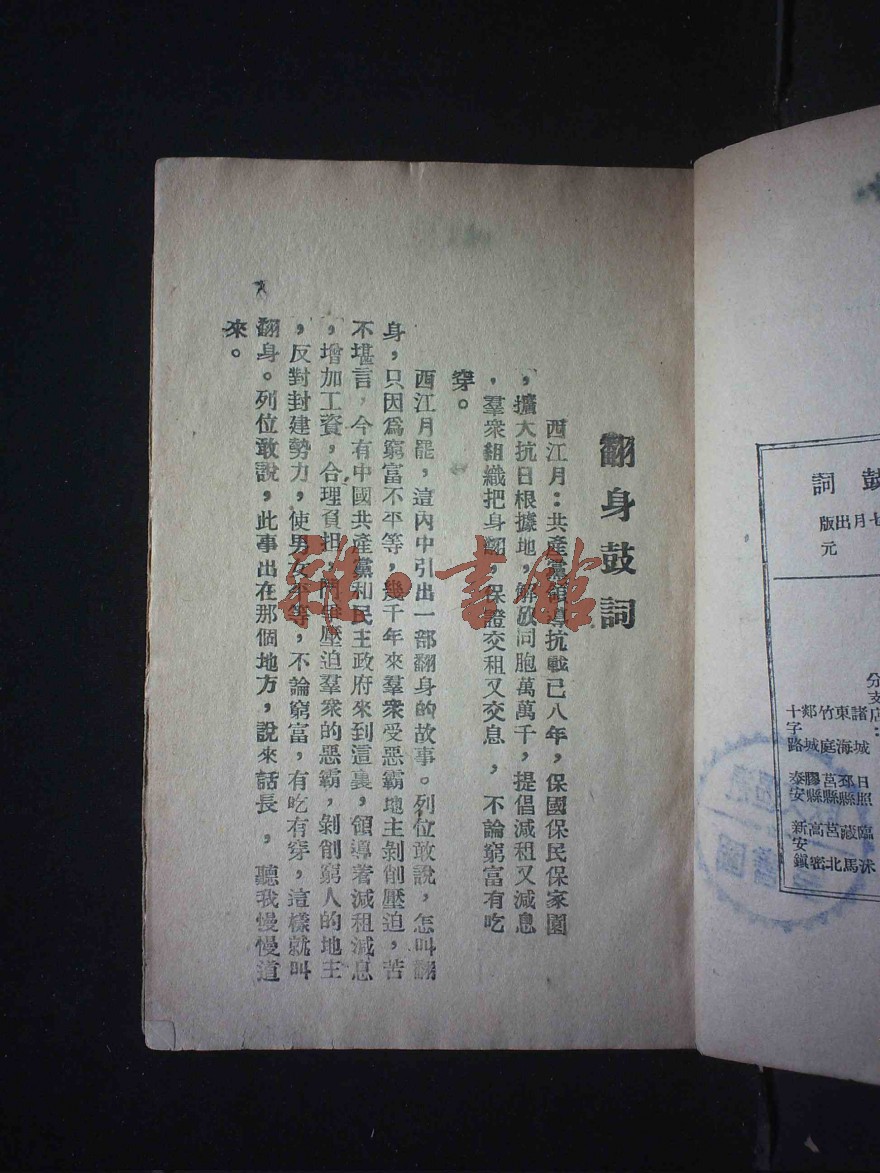 翻身鼓詞
西江月：共產黨領導抗戰已八年，保國保民保家園
，擴大抗日根據地，解放同胞萬萬千，提倡減租又減息
，羣衆組織把身翻，保證交租又交息，不論窮富有吃
穿。
西江月罷，這內中引出一部翻身的故事。列位敢說，怎叫翻
身，只因爲窮富不平等，幾千年來羣衆受惡霸地主剝削壓迫，苦
不堪言，今有中國共產黨和民主政府來到這裏，領導着減租減息
，增加工資，合理負担，鬥爭壓迫羣衆的惡霸，剝削窮人的地主
，反對封建勢力，使男女平等，不論窮富，有吃有穿，這樣就叫
翻身。列位敢說，此事出在那個地方，說來話長，聽我慢慢道
來。
雜·書館
鼓詞
七月出版
元
分支店：
諸城
東海
竹庭
郯城
十字路
日照
邳縣
莒縣
膠縣
泰安
臨沭
藏馬
莒北
高密
新安鎮